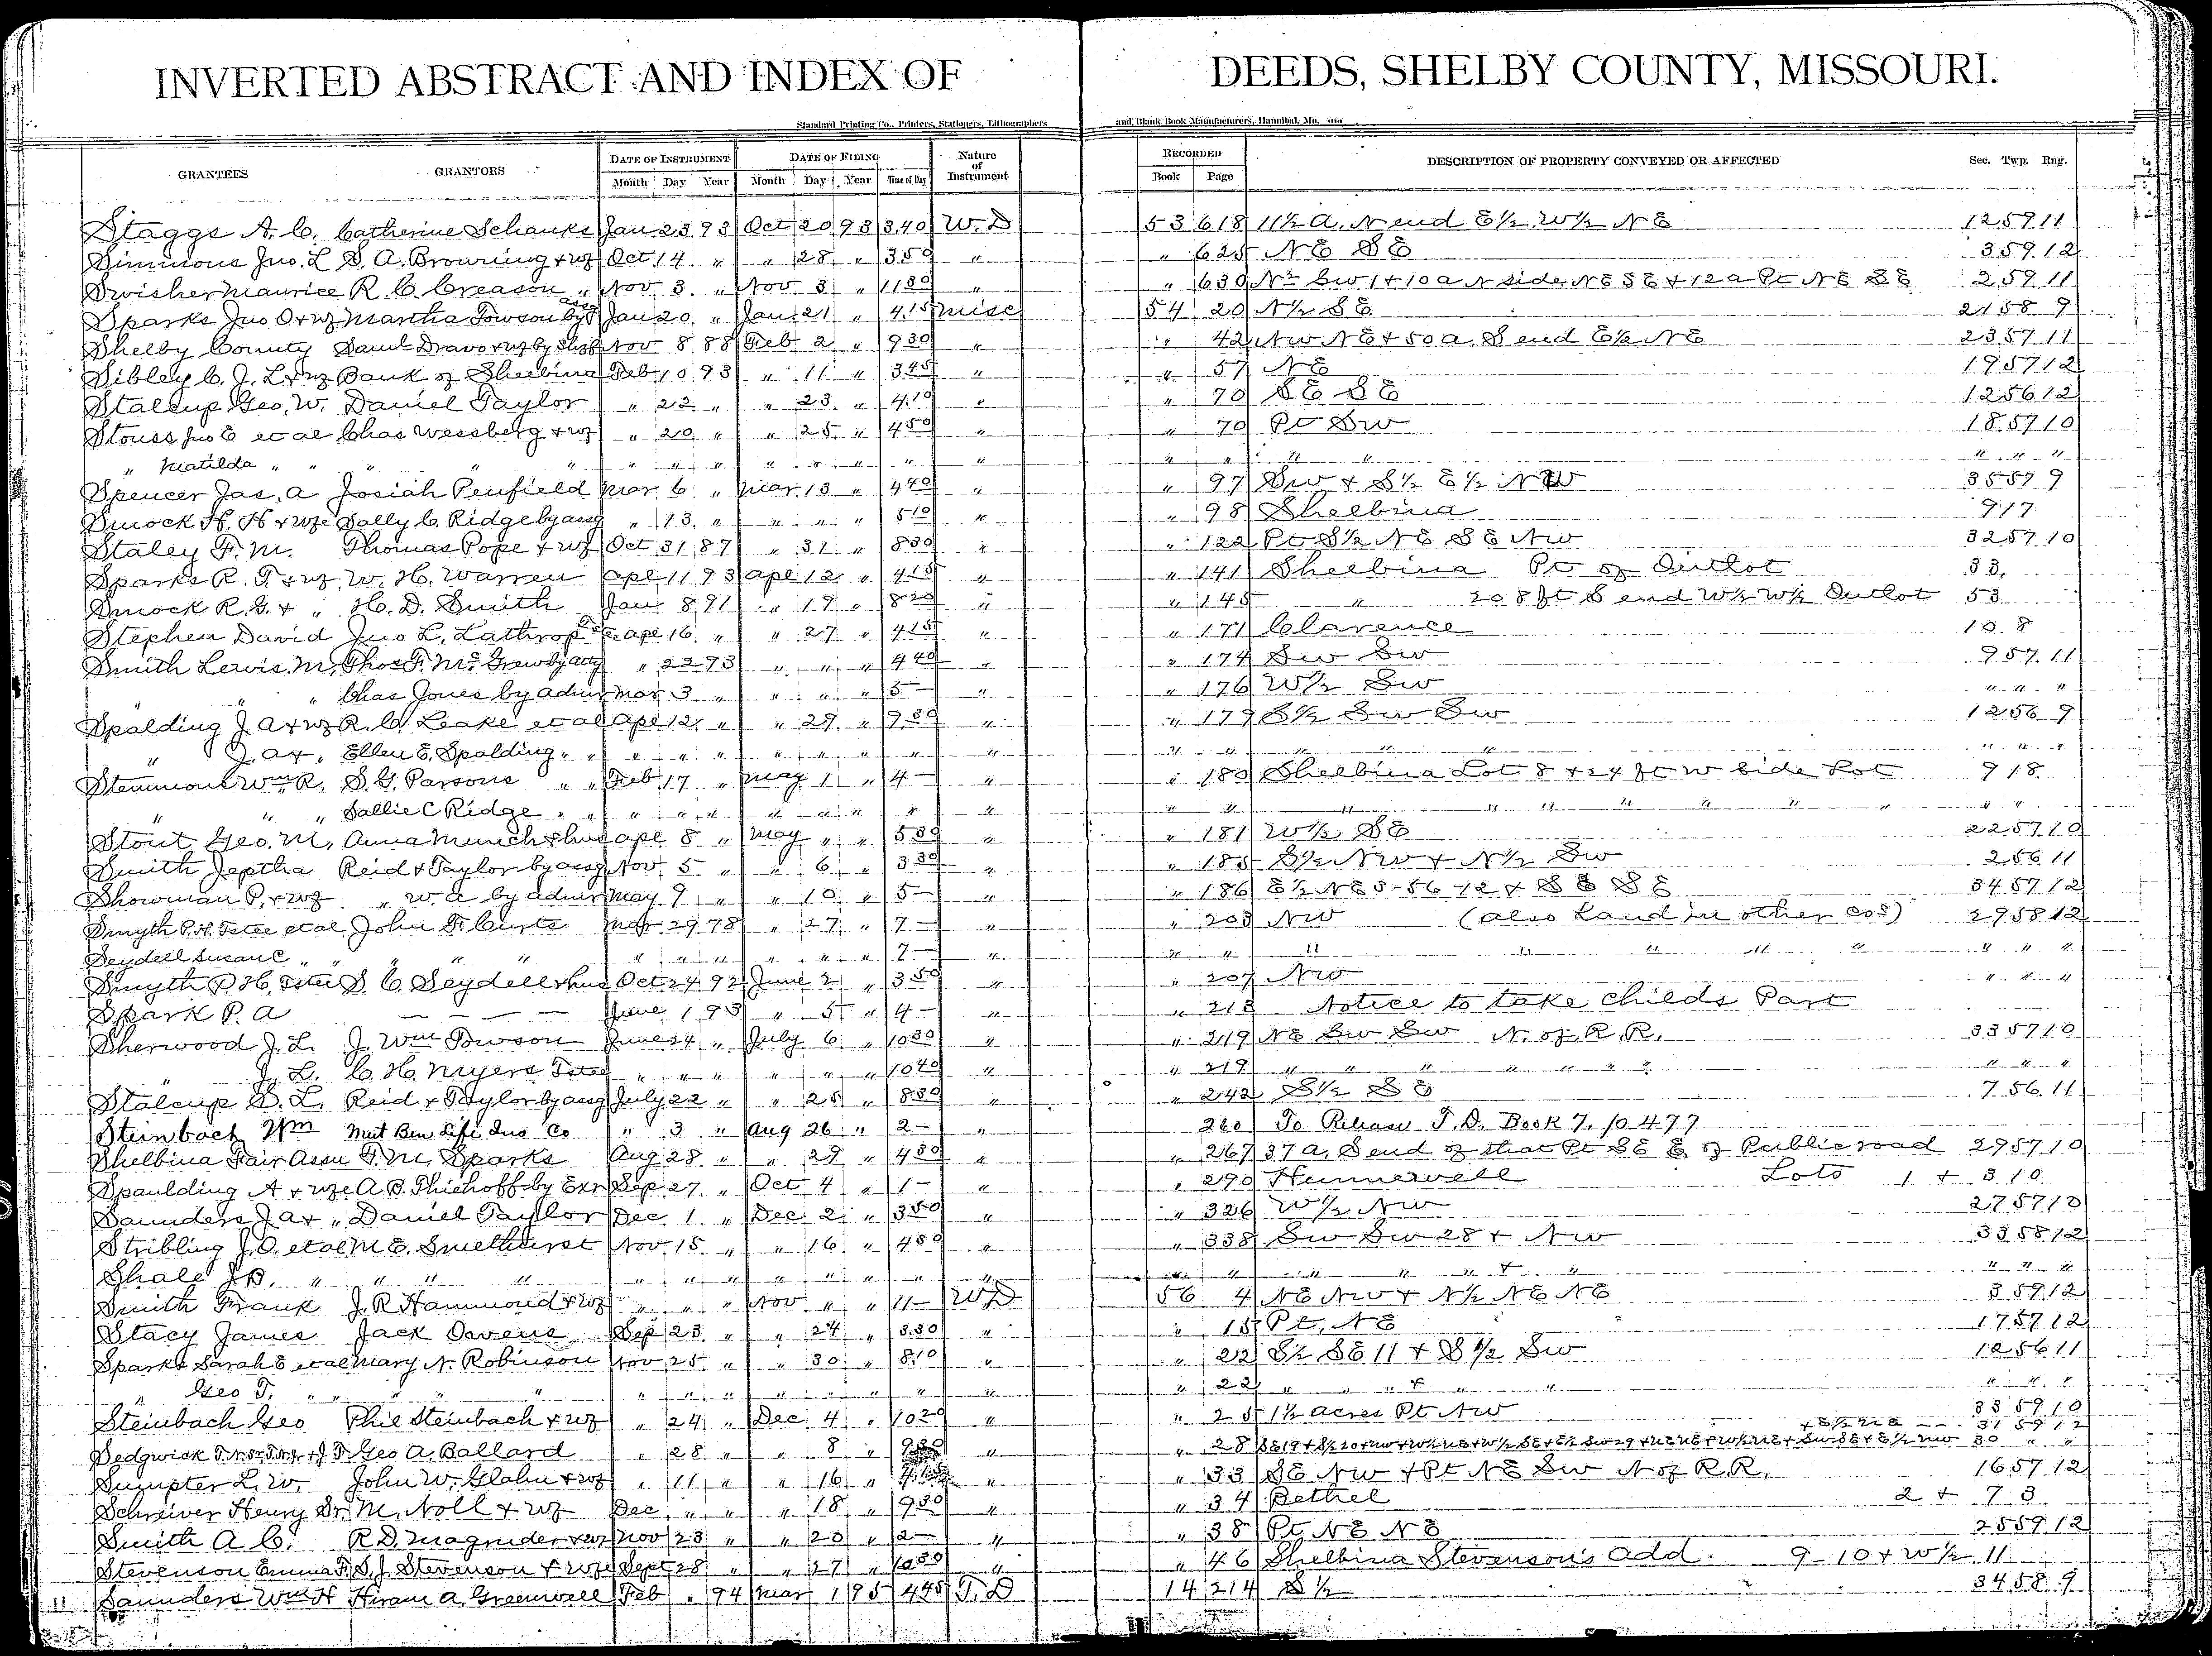 INVERTED ABSTRACT AND INDEX OF DEEDS, SHELBY COUNTY, MISSOURI.
Standard Printing Co., Printers, Stationers, Lithographers and Blank Book Manufacturers, Hannibal, Mo.
GRANTEES GRANTORS DATE OF INSTRUMENT DATE OF FILING Nature of Instrument RECORDED DESCRIPTION OF PROPERTY CONVEYED OR AFFECTED Sec. Twp. Rng.
Month Day Year Month Day Year Time of Day Book Page
Staggs A. C. Catherine Schanks Jan 23 93 Oct 20 93 3.40 W.D 53 618 11½ A. N end E½ W½ NE 12 59 11
Simmons Jno. L S. A. Browning + wf Oct 14 " " 28 " 3 50 " " 625 NE SE 3 59 12
Swisher Maurice R. C. Creason " Nov 3 " Nov 3 " 11 30 " " 630 N½ SW 1 + 10 a N side NE SE + 12 a Pt NE SE 2 59 11
Sparks Jno O + wf Martha Towson by assg Jan 20 " Jan 21 " 4.15 Misc 54 20 N½ SE 21 58 9
Shelby County Saml Dravo + wf by Shff Nov 8 88 Feb 2 " 9 30 " " 42 NW NE + 50 a. S end E½ NE 23 57 11
Sibley C. J. L + wf Bank of Shelbina Feb 10 93 " 11 " 3 45 " " 57 NE 19 57 12
Stalcup Geo. W. Daniel Taylor " 22 " " 23 " 4.10 " " 70 SE SE 12 56 12
Stouss Jno E et al Chas Wessberg + wf " 20 " " 25 " 4 50 " " 70 Pt SW 18 57 10
" Matilda " " " " " " " " " " " " " " " " " " " "
Spencer Jas. A Josiah Penfield Mar 6 " Mar 13 " 4 40 " " 97 SW + S½ E½ NW 35 57 9
Smock H. H + wfe Sally C. Ridge by assg " 13 " " " " 5 10 " " 98 Shelbina 9 17
Staley F. M. Thomas Pope + wf Oct 31 87 " 31 " 8 30 " " 122 Pt S½ NE SE NW 32 57 10
Sparks R. T. + wf W. H. Warren Apl 11 93 Apl 12 " 4 15 " " 141 Shelbina Pt of Outlot 33
Smock R. G. + " H. D. Smith Jan 8 91 " 19 " 8 20 " " 145 " 208 ft S end W½ W½ Outlot 53
Stephen David Jno L. Lathrop Apl 16 " " 27 " 4 15 " " 171 Clarence 10 8
Smith Lewis M. Thos F. McGrew by atty " 22 93 " " " 4 40 " " 174 SW SW 9 57 11
" " Chas Jones by admr Mar 3 " " " " 5 — " " 176 W½ SW " " "
Spalding J A + wf R. C. Leake et al Apl 12 " " 29 " 7.30 " " 179 S½ SW SW 12 56 9
" J. A + " Ellen E. Spalding " " " " " " " " " " " " " " " " " " "
Stemmons Wm R. S. G. Parsons " " Feb 17 " May 1 " 4 — " " 180 Shelbina Lot 8 + 24 ft W side Lot 9 18
" " " Sallie C Ridge " " " " " " " " " " " " " " " " " " " " "
Stout Geo. M. Anna Munch + hus Apl 8 " May " " 5 30 " " 181 W½ SE 22 57 10
Smith Jeptha Reid + Taylor by assg Nov 5 " " 6 " 3 30 " " 185 S½ NW + N½ SW 2 56 11
Showman P. + wf " W. A by admr May 9 " " 10 " 5 — " " 186 E½ NE 3-56-12 + SE SE 34 57 12
Smyth P. H. Tstee et al John F. Curts Mar 29 78 " 27 " 7 — " 203 NW (also Land in other cos) 29 58 12
Seydell Susan C " " " " " " " " " " " 7 — " " " " " " " " " " " "
Smyth P. H. Tstee S. C. Seydell + hus Oct 24 92 June 2 " 3 50 " " 207 NW " " "
Spark P. A — — — June 1 93 " 5 " 4 — " " 213 Notice to take childs Part
Sherwood J. L. J. Wm Towson June 24 " July 6 " 10 30 " " 219 NE SW SW N. of R. R. 33 57 10
" J. L. C. H. Myers Tstee " " " " " " 10 40 " " 219 " " " " " " " " " "
Stalcup S. L. Reid + Taylor by assg July 22 " " 25 " 8 30 " " 242 S½ SE 7 56 11
Steinbach Wm Mut Ben Life Ins Co " 3 " Aug 26 " 2 — 260 To Release T.D. Book 7, p 477
Shelbina Fair Assn F. M. Sparks Aug 28 " " 29 " 4 30 " " 267 37 a. S end of that Pt SE E of Public road 29 57 10
Spaulding A + wfe A. B. Thiehoff by Exr Sep 27 " Oct 4 " 1 — " " 290 Hunnewell Lots 1 + 3 10
Saunders J A + " Daniel Taylor Dec 1 " Dec 2 " 3 50 " " 326 W½ NW 27 57 10
Stribling J. O. et al M. E. Smelthurst Nov 15 " " 16 " 4 50 " " 338 SW SW 28 + NW 33 58 12
Shale J. B. " " " " " " " " " " " " " " " " " + " " " "
Smith Frank J. R Hammond + wf " " " Nov " " 11 — W D 56 4 NE NW + N½ NE NE 3 59 12
Stacy James Jack Owens Sep 23 " " 24 " 3.30 " " 15 Pt. NE 17 57 12
Sparks Sarah E et al Mary N. Robinson Nov 25 " " 30 " 8.10 " " 22 S½ SE 11 + S½ SW 12 56 11
" Geo T. " " " " " " " " " " " " " " 22 " " " + " " " " "
Steinbach Geo Phil Steinbach + wf " 24 " Dec 4 " 10 20 " " 25 1½ acres Pt NW 33 59 10
+ E½ NE — — 31 59 12
Sedgwick Geo A. Ballard " 28 " " 8 " " " 28 SE 19 + S½ 20 + NW + W½ NE + W½ SE + E½ SW 29 + NE NE + W½ NE + SW SE + E½ NW 30 " "
Sumpter L. W. John W. Glahn + wf " 11 " " 16 " " " 33 SE NW + Pt NE SW N of R.R. 16 57 12
Schreiver Henry Sr. M. Noll + wf Dec " " " 18 " 9 30 " " 34 Bethel 2 + 7 3
Smith A C. R. D. Magruder + wf Nov 23 " " 20 " 2 — " " 38 Pt. NE NE 25 59 12
Stevenson Emma F. S. J. Stevenson + wfe Sept 28 " " 27 " 10 30 " " 46 Shelbina Stevenson's Add. 9-10 + W½ 11
Saunders Wm H Hiram A. Greenwell Feb " 94 Mar 1 95 4 45 T. D 14 214 S½ 34 58 9